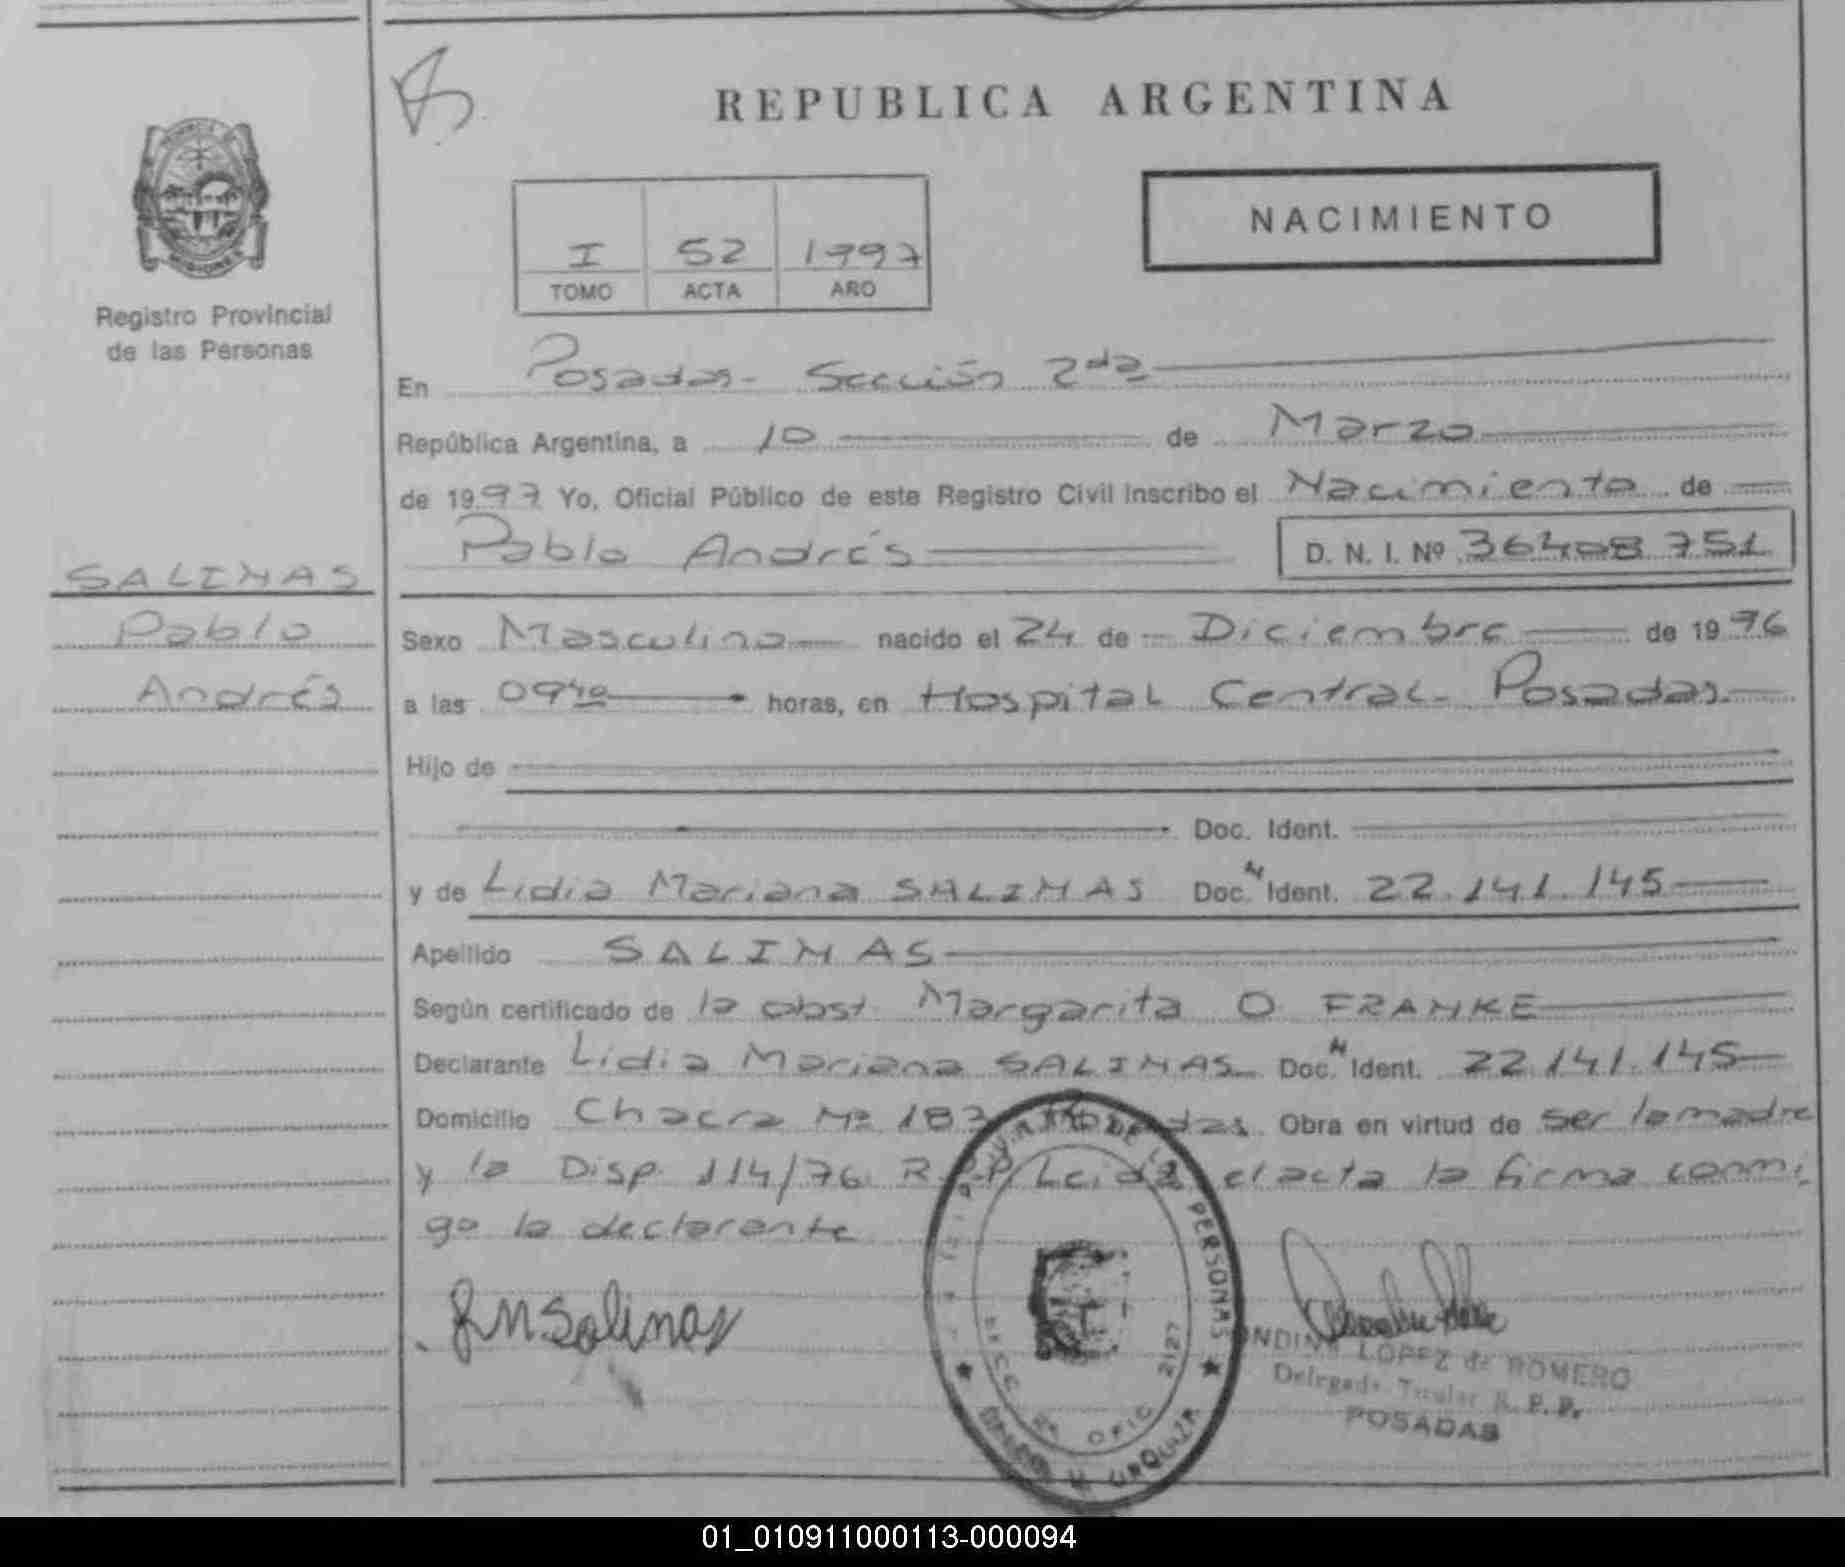 REPUBLICA ARGENTINA
MISIONES
Registro Provincial
de las Personas
NACIMIENTO
I 52 1997
TOMO ACTA AÑO
En Posadas - Sección 2da
República Argentina, a 10 de Marzo
de 1997 Yo, Oficial Público de este Registro Civil inscribo el Nacimiento de
Pablo Andrés D. N. I. Nº 36408751
SALINAS
Pablo
Andrés
Sexo Masculino nacido el 24 de Diciembre de 1996
a las 0940 horas, en Hospital Central - Posadas
Hijo de
Doc. Ident.
y de Lidia Mariana SALINAS Doc. N Ident. 22.141.145
Apellido SALINAS
Según certificado de la obst. Margarita O. FRANKE
Declarante Lidia Mariana SALINAS Doc. N Ident. 22.141.145
Domicilio Chacra Nº 183 Posadas Obra en virtud de ser la madre
y la Disp. 114/76 R.P.P. Leída el acta la firma conmi
go la declarante
LMSalinas
DE LAS PERSONAS
SECC OFIC 2127
URQUIZA
LOPEZ de ROMERO
Delegada Titular R. P. P.
POSADAS
01_010911000113-000094